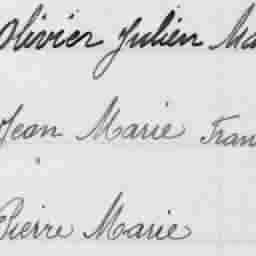 Olivier Julien Ma
Jean Marie Fran
Pierre Marie